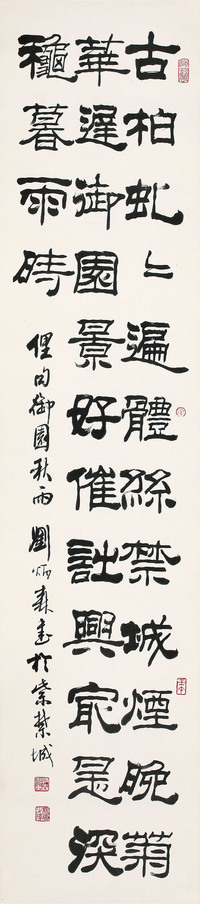 古柏虬〻遍體絲禁城煙晚菊
華遲御園景好催詩興冣是深
龝暮雨時
俚句御園秋雨 劉炳森書於紫禁城